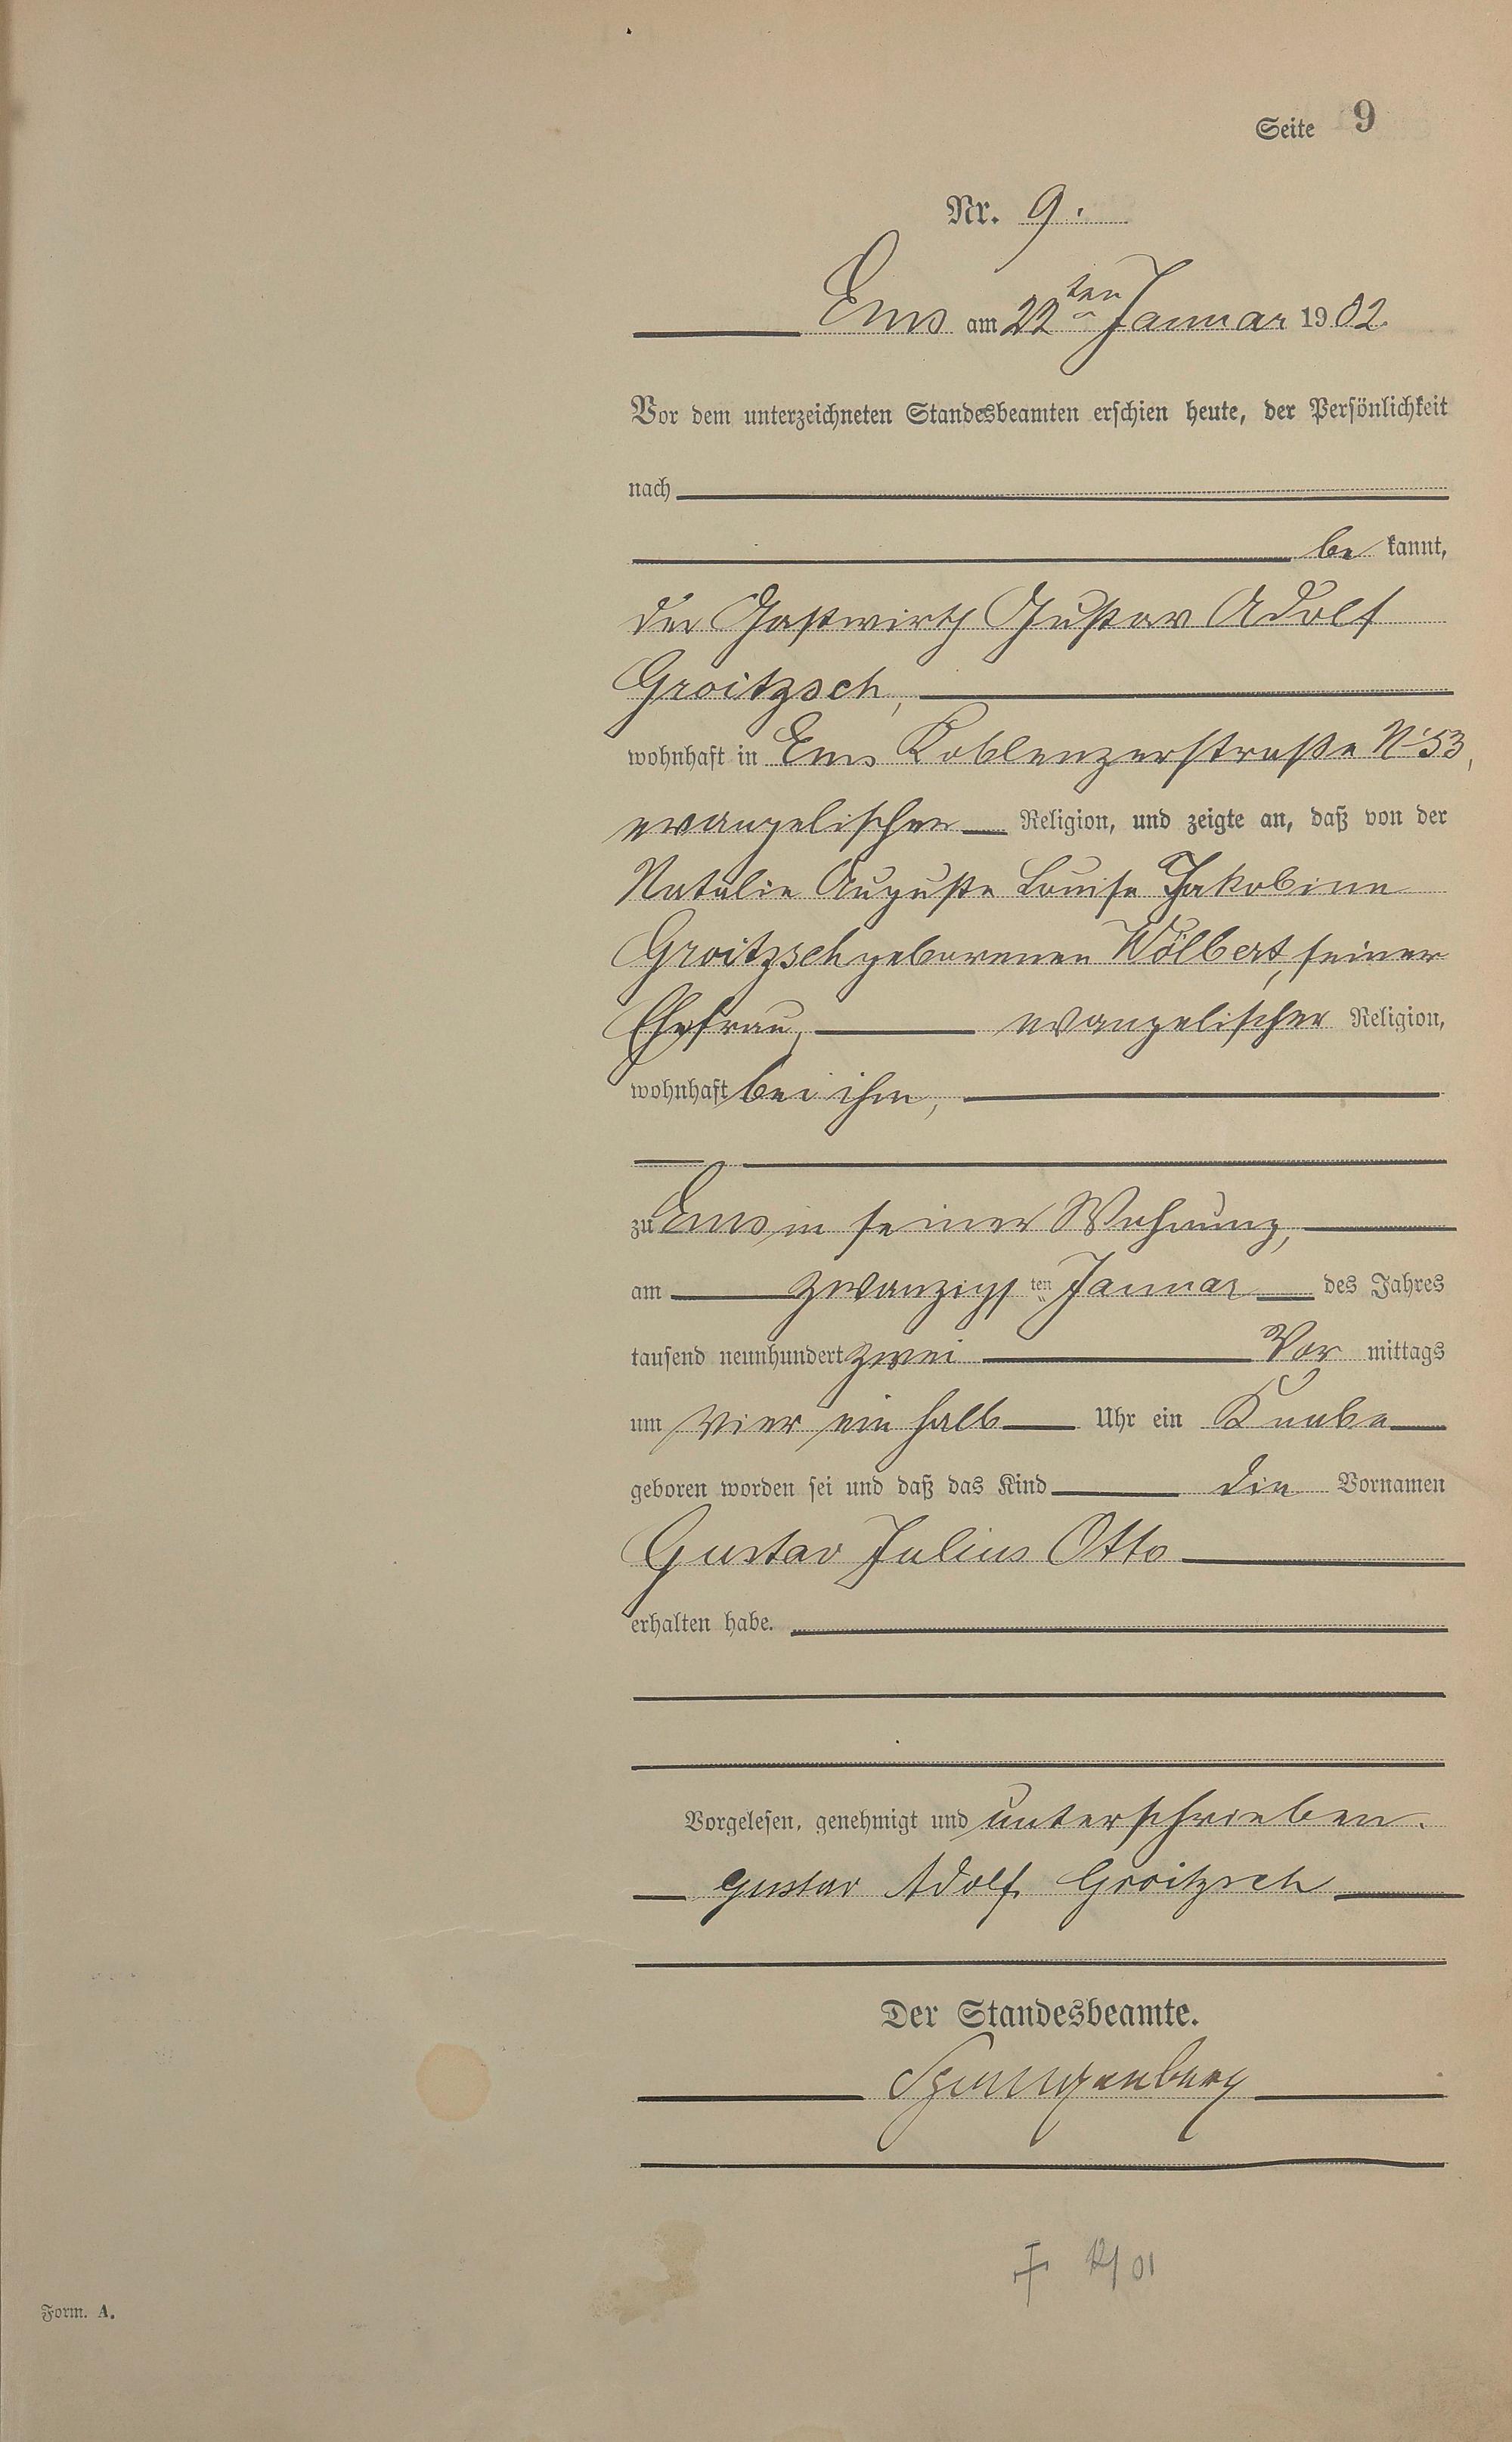 Seite 9
Nr. 9.
Ems am 22ten Januar 1902.
Vor dem unterzeichneten Standesbeamten erschien heute, der Persönlichkeit
nach
be kannt,
der Gastwirth Gustav Adolf
Groitzsch,
wohnhaft in Ems Koblenzerstraße No 53,
evangelischer Religion, und zeigte an, daß von der
Natalie Auguste Louise Jakobine
Groitzsch geborenen Wölbert, seiner
Ehefrau, evangelischer Religion,
wohnhaft bei ihm,
zu Ems in seiner Wohnung,
am zwanzigsten Januar des Jahres
tausend neunhundert zwei Vor mittags
um vier ein halb Uhr ein Knabe
geboren worden sei und daß das Kind die Vornamen
Gustav Julius Otto
erhalten habe.
Vorgelesen, genehmigt und unterschrieben.
Gustav Adolf Groitzsch
Der Standesbeamte.
Spangenberg
Form. A.